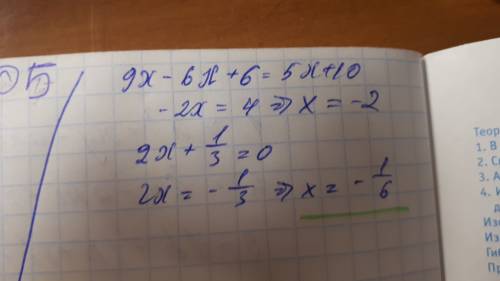 5
9x - 6x + 6 = 5x + 10
-2x = 4 => x = -2
2x + 1/3 = 0
2x = - 1/3 => x = - 1/6
Теор
1. В
2. С
3. А
4. И
д
Изо
Из
Гиб
Пр